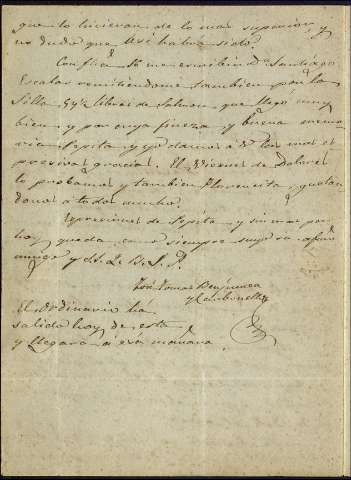 que lo hicieran de lo mas superior y
no dudo que asi habra sido.
Con fha me escribió Dn Santiago
Escalas remitiendome tambien por la
Silla 5 y 1/2 libras de Salmon, que llegó muy
bien, y por cuya fineza y buena memo
ria Pepita y yo damos á V. las mas es
presivas gracias. El Viernes de Dolores
lo probamos y tambien Florencita, gustan
donos á todos mucho.
Espresiones de Pepita y sin mas por
hoy, queda como siempre suyo afmo
amigo y S. S. Q. B. S. M.
José Tomas
y
El Ordinario há
salido hoy de esta
y llegará á esa mañana.